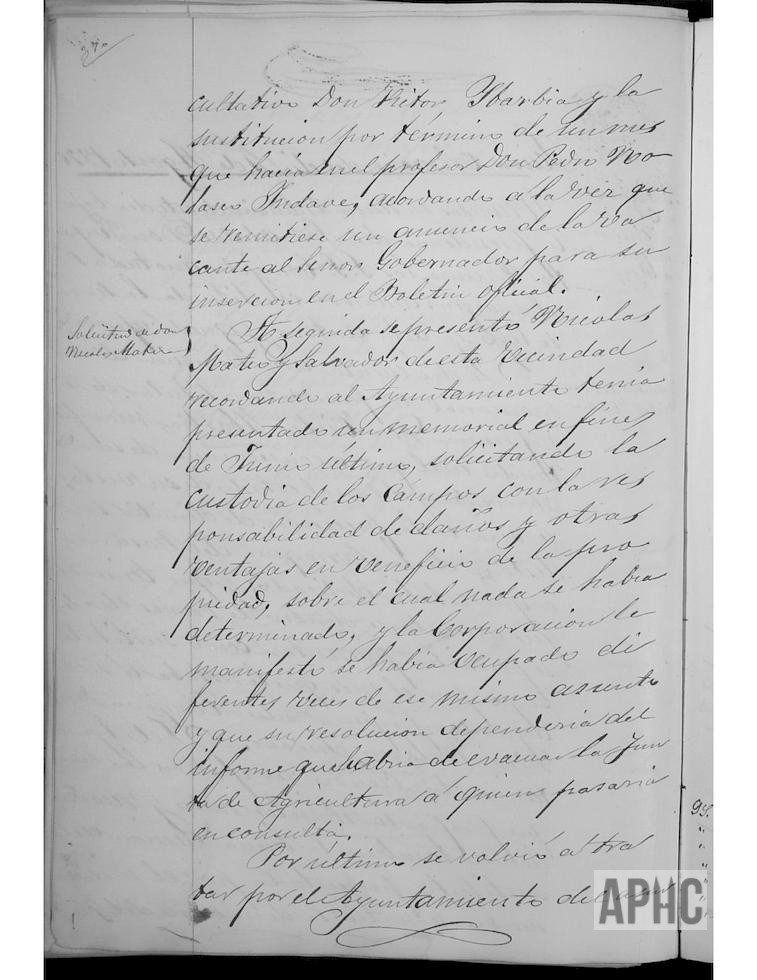 cultativo Don Victor Ybarbia y la
sustitucion por término de un mes
que hacia en el profesor Don Pedro No
lasco Indave, acordando a la vez que
se remitiese un anuncio de la va
cante al Señor Gobernador para su
insercion en el Boletin oficial.
Solicitud de don
Nicolas Mateo
A seguida se presentó Nicolas
Mateo y Salvador de esta vecindad
recordando al Ayuntamiento tenia
presentado un memorial en fines
de Junio ultimo, solicitando la
custodia de los campos con la res
ponsabilidad de daños y otras
ventajas en veneficio de la pro
piedad, sobre el cual nada se habia
determinado, y la Corporacion le
manifestó se habia ocupado di
ferentes veces de ese mismo asunto
y que su resolucion dependeria del
informe que habria de evacuar la Jun
ta de Agricultura á quien pasaria
en consulta.
Por último se volvió á tra
tar por el Ayuntamiento del
APHC